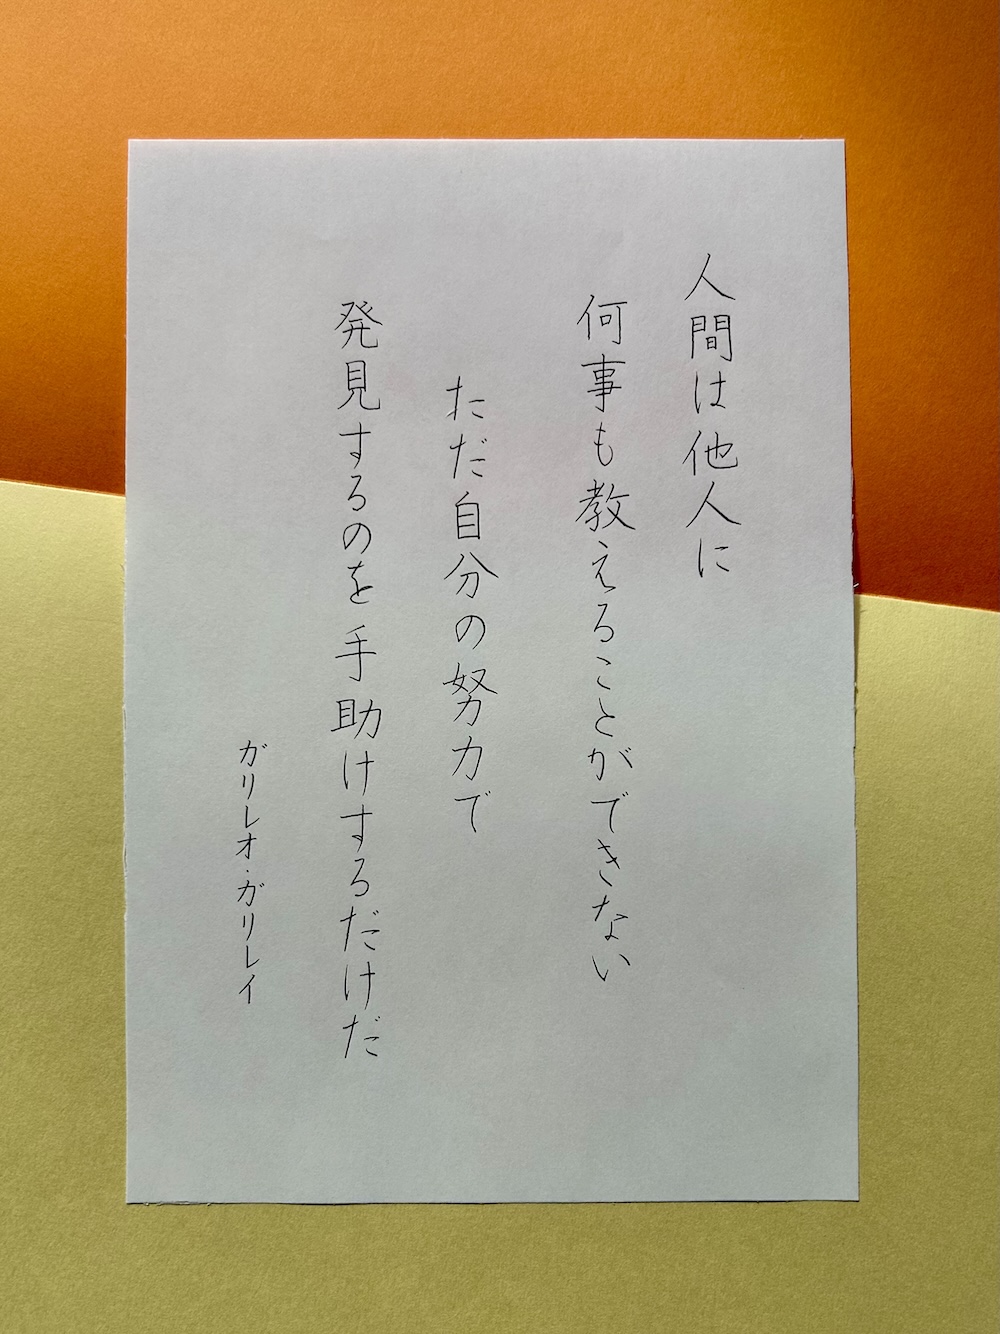 人間は他人に
何事も教えることができない
ただ自分の努力で
発見するのを手助けするだけだ
ガリレオ・ガリレイ